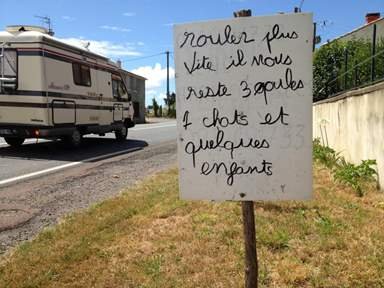 rouler plus
vite il nous
reste 3 poules
7 chats et
quelques
enfants